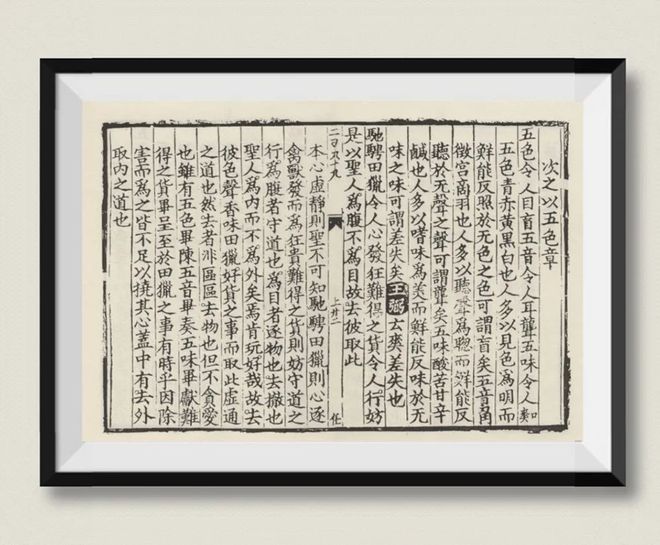 次之以五色章
五色令人目盲五音令人耳聾五味令人爽
五色青赤黃黑白也人多以見色爲明而
鮮能反照於无色之色可謂盲矣五音角
徵宮商羽也人多以聽聲爲聰而鮮能反
聽於无聲之聲可謂聾矣五味酸苦甘辛
鹹也人多以嗜味爲美而鮮能反味於无
味之味可謂差失矣王弼云爽差失也
馳騁田獵令人心發狂難得之貨令人行妨
是以聖人爲腹不爲目故去彼取此
上廿二
任
本心虛靜則聖不可知馳騁田獵則心逐
禽獸發而爲狂貴難得之貨則妨守道之
行爲腹者守道也爲目者逐物也去撤也
聖人爲內而不爲外矣焉肯玩好哉故去
彼色聲香味田獵好貨之事而取此虛通
之道也然去者非區區去物也但不貪愛
也雖有五色畢陳五音畢奏五味畢獻難
得之貨畢呈至於田獵之事有時乎因除
害而爲之皆不足以撓其心蓋中有去外
取內之道也